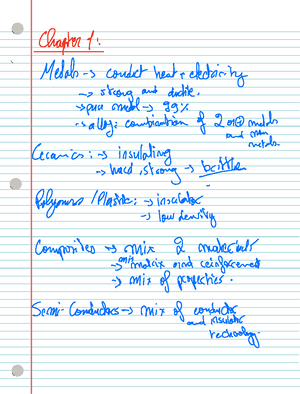 Chapter 1:
Metals -> conduct heat + electricity
-> strong and ductile.
-> pure metal -> 99%
-> alloy: combination of 2 or metals
and non
metals.
Ceramics: -> insulating
-> hard, strong -> brittle
Polymers / Plastic: -> insulator
-> low density
Composites -> mix 2 materials
-> mix matrix and reinforcement
-> mix of properties.
Semi-Conductors -> mix of conductor
and insulator
technology.